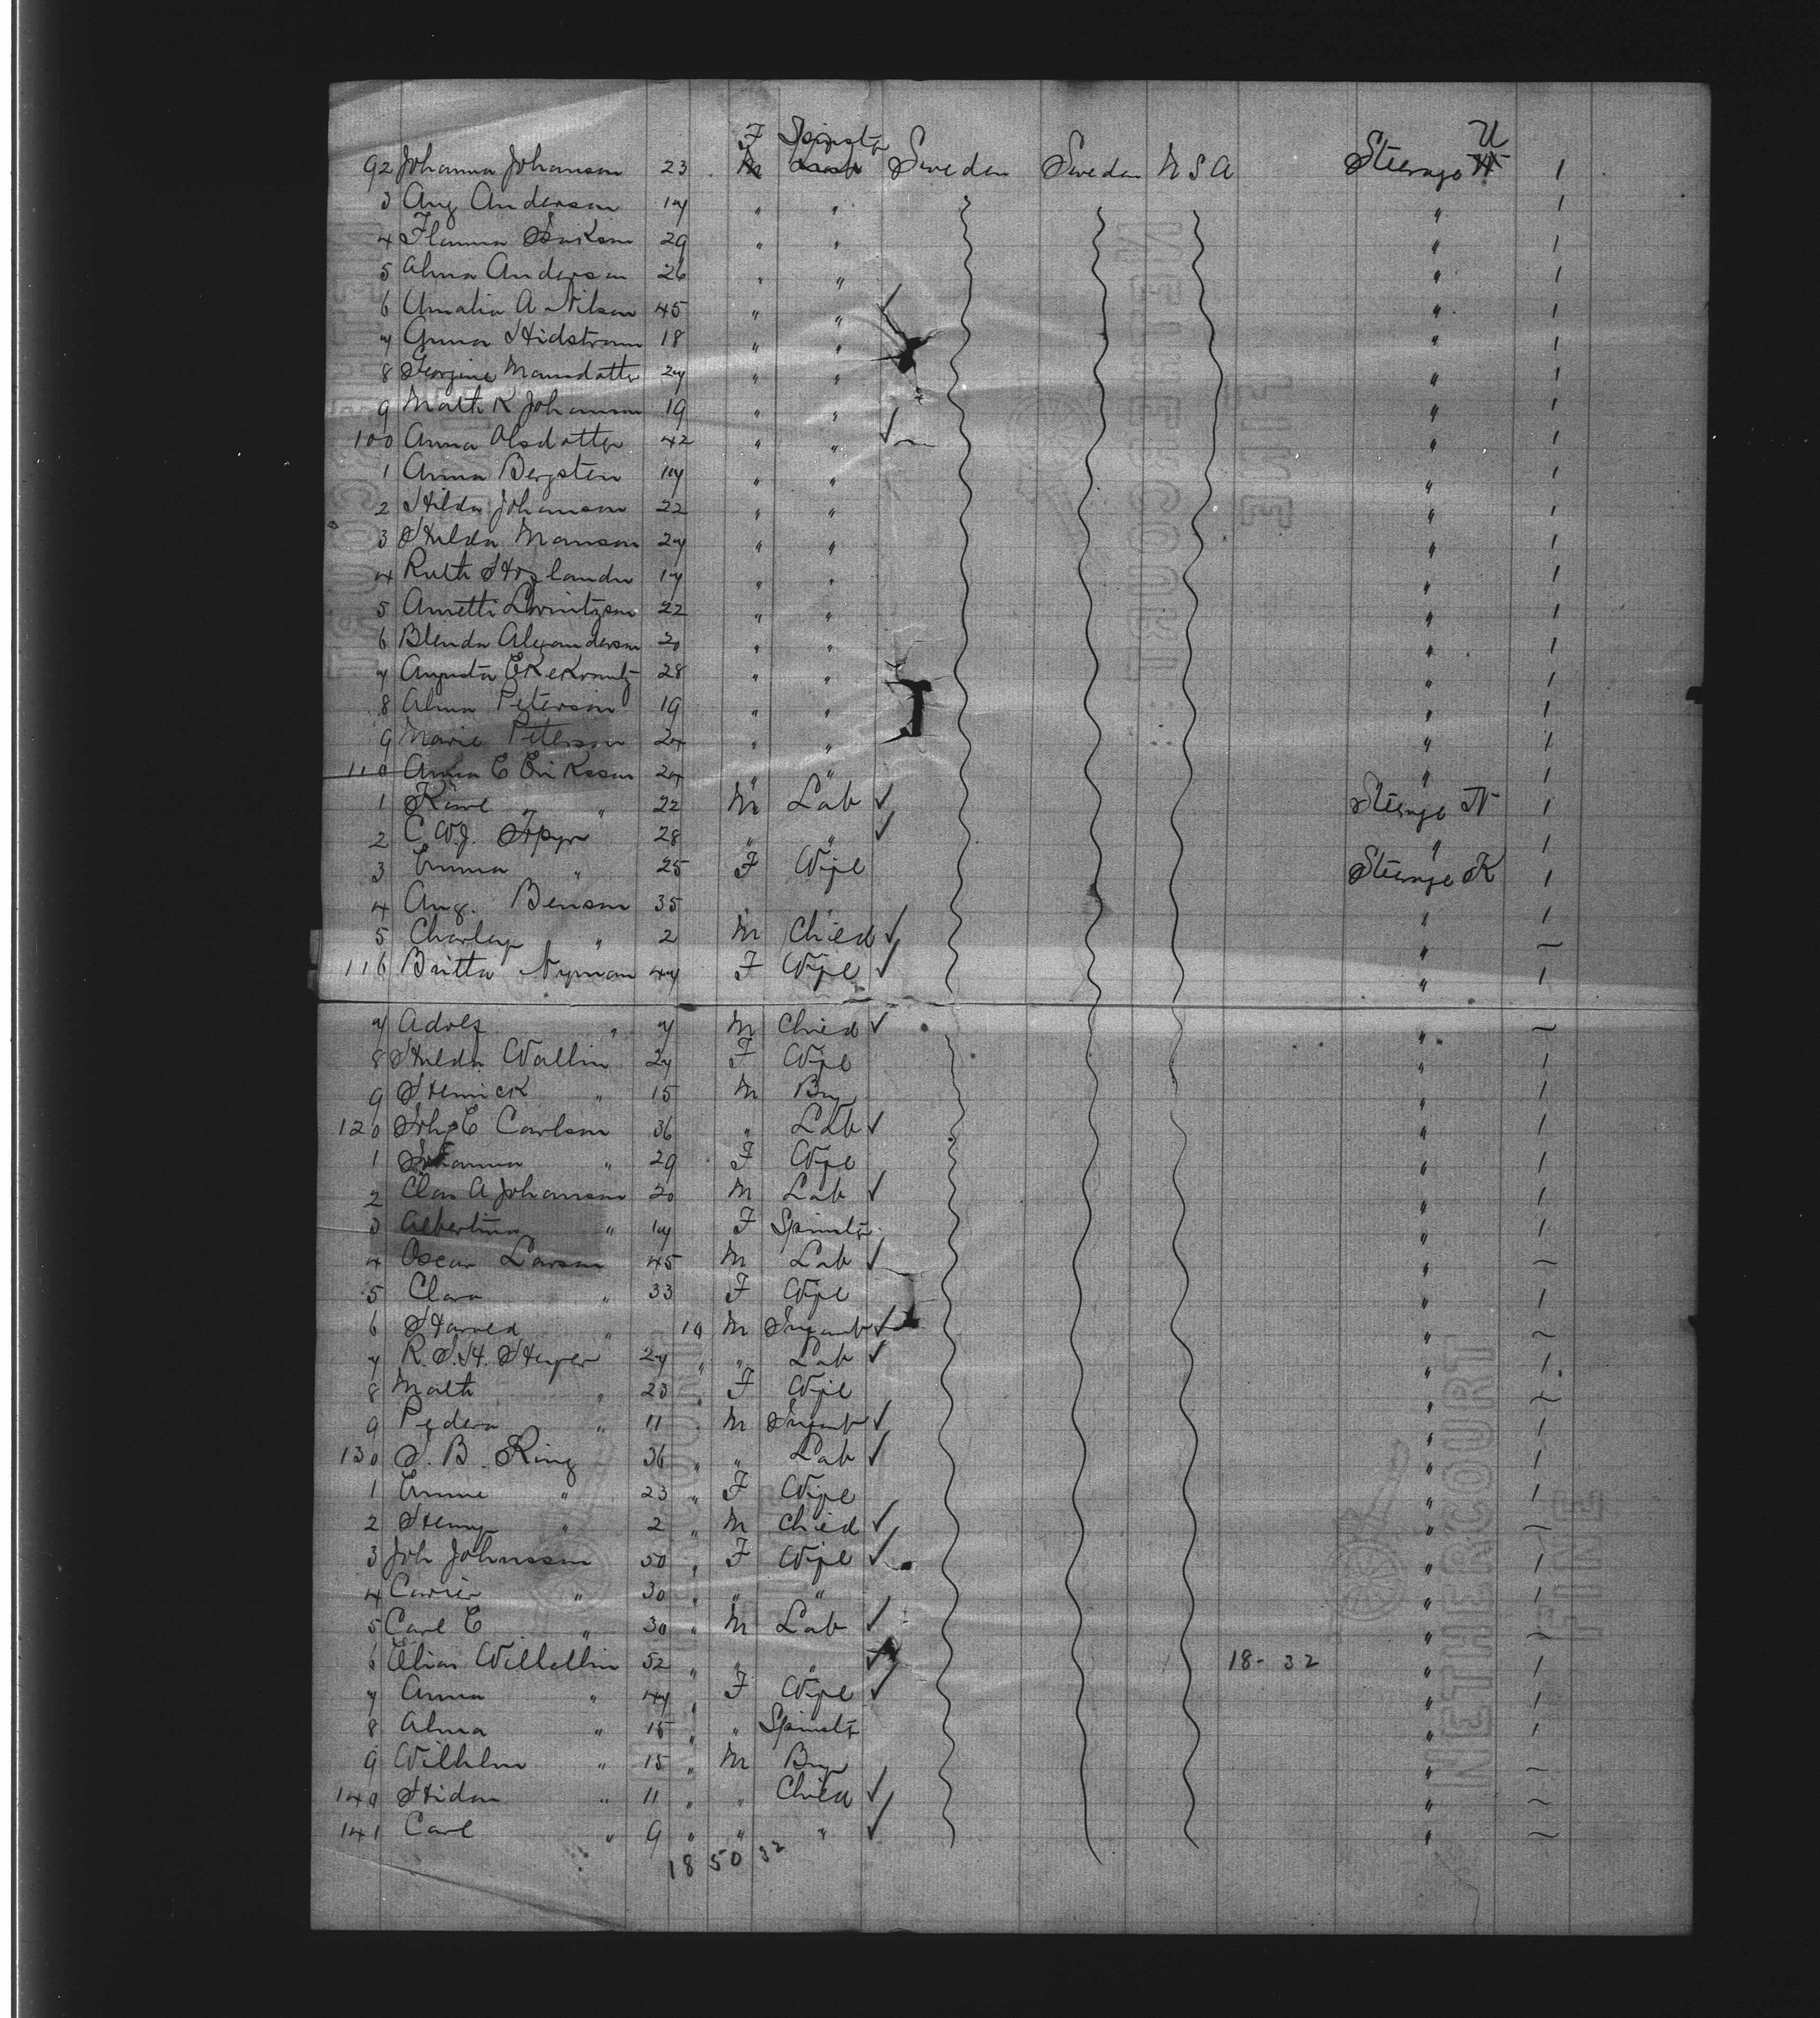 F Spinster
92 Johanna Johanson 23 M Sweden Sweden USA Steerage U 1
3 Aug Anderson 17 " " " 1
4 29 " " " 1
5 Alma Anderson 26 " " " 1
6 Amalia A Nilson 45 " " " 1
7 Hidstrom 18 " " " 1
8 Georgine Mansdotter 27 " " " 1
9 Math K Johanson 19 " " " 1
100 Anna Olsdotter 42 " " " 1
1 Anna Bergsten 17 " " " 1
2 Hilda Johanson 22 " " " 1
3 Hilda Manson 27 " " " 1
4 Ruth Hoglander 17 " " " 1
5 Annetti 22 " " " 1
6 Blenda Alexanderson 20 " " " 1
7 Augusta Ekekrantz 28 " " " 1
8 Alma Peterson 19 " " " 1
9 Marie Peterson 24 " " " 1
110 Anna E Eriksson 24 " " " 1
1 Karl " " 22 M Lab ✓ Steerage 1
2 C. W. J. 28 " " ✓ " 1
3 Emma " 25 F Wife Steerage K 1
4 Aug. Benson 35 " " " 1
5 Charley " 2 M Child ✓ " ~
116 Britta Nyman 47 F Wife ✓ " 1
7 Adolf " 7 M Child ✓ " ~
8 Hulda Wallin 27 F Wife " 1
9 Henrick " 15 M Boy " 1
120 Joh E Carlson 36 " Lab ✓ " 1
1 Johanna " 29 F Wife " 1
2 Clas A Johanson 20 M Lab ✓ " 1
3 Albertina " 17 F Spinster " 1
4 Oscar Larson 45 M Lab ✓ " ~
5 Clara " 33 F Wife " 1
6 Harved " 10 M Infant ✓ " ~
7 R. S. H. 27 " " Lab ✓ " 1
8 Math " 23 " F Wife " ~
9 " 11 M Infant ✓ " 1
130 S. B. Ring 36 " " Lab ✓ " 1
1 Emme " 23 " F Wife " 1
2 Henry " 2 " M Child ✓ " ~
3 Joh Johnsson 50 " F Wife ✓ " 1
4 Carrier " 30 " " " " 1
5 Carl E " 30 " M Lab ✓ " ~
6 Elias 52 " " " ✓ 18- 32 " 1
7 Anna " 47 " F Wife ✓ " 1
8 Alma " " " Spinster " 1
9 Wilhelm " 15 " M Boy " ~
140 " 11 " " Child ✓ " ~
141 Carl " 9 " " " ✓ " ~
18 50 32
NETHERCOURT
FINE